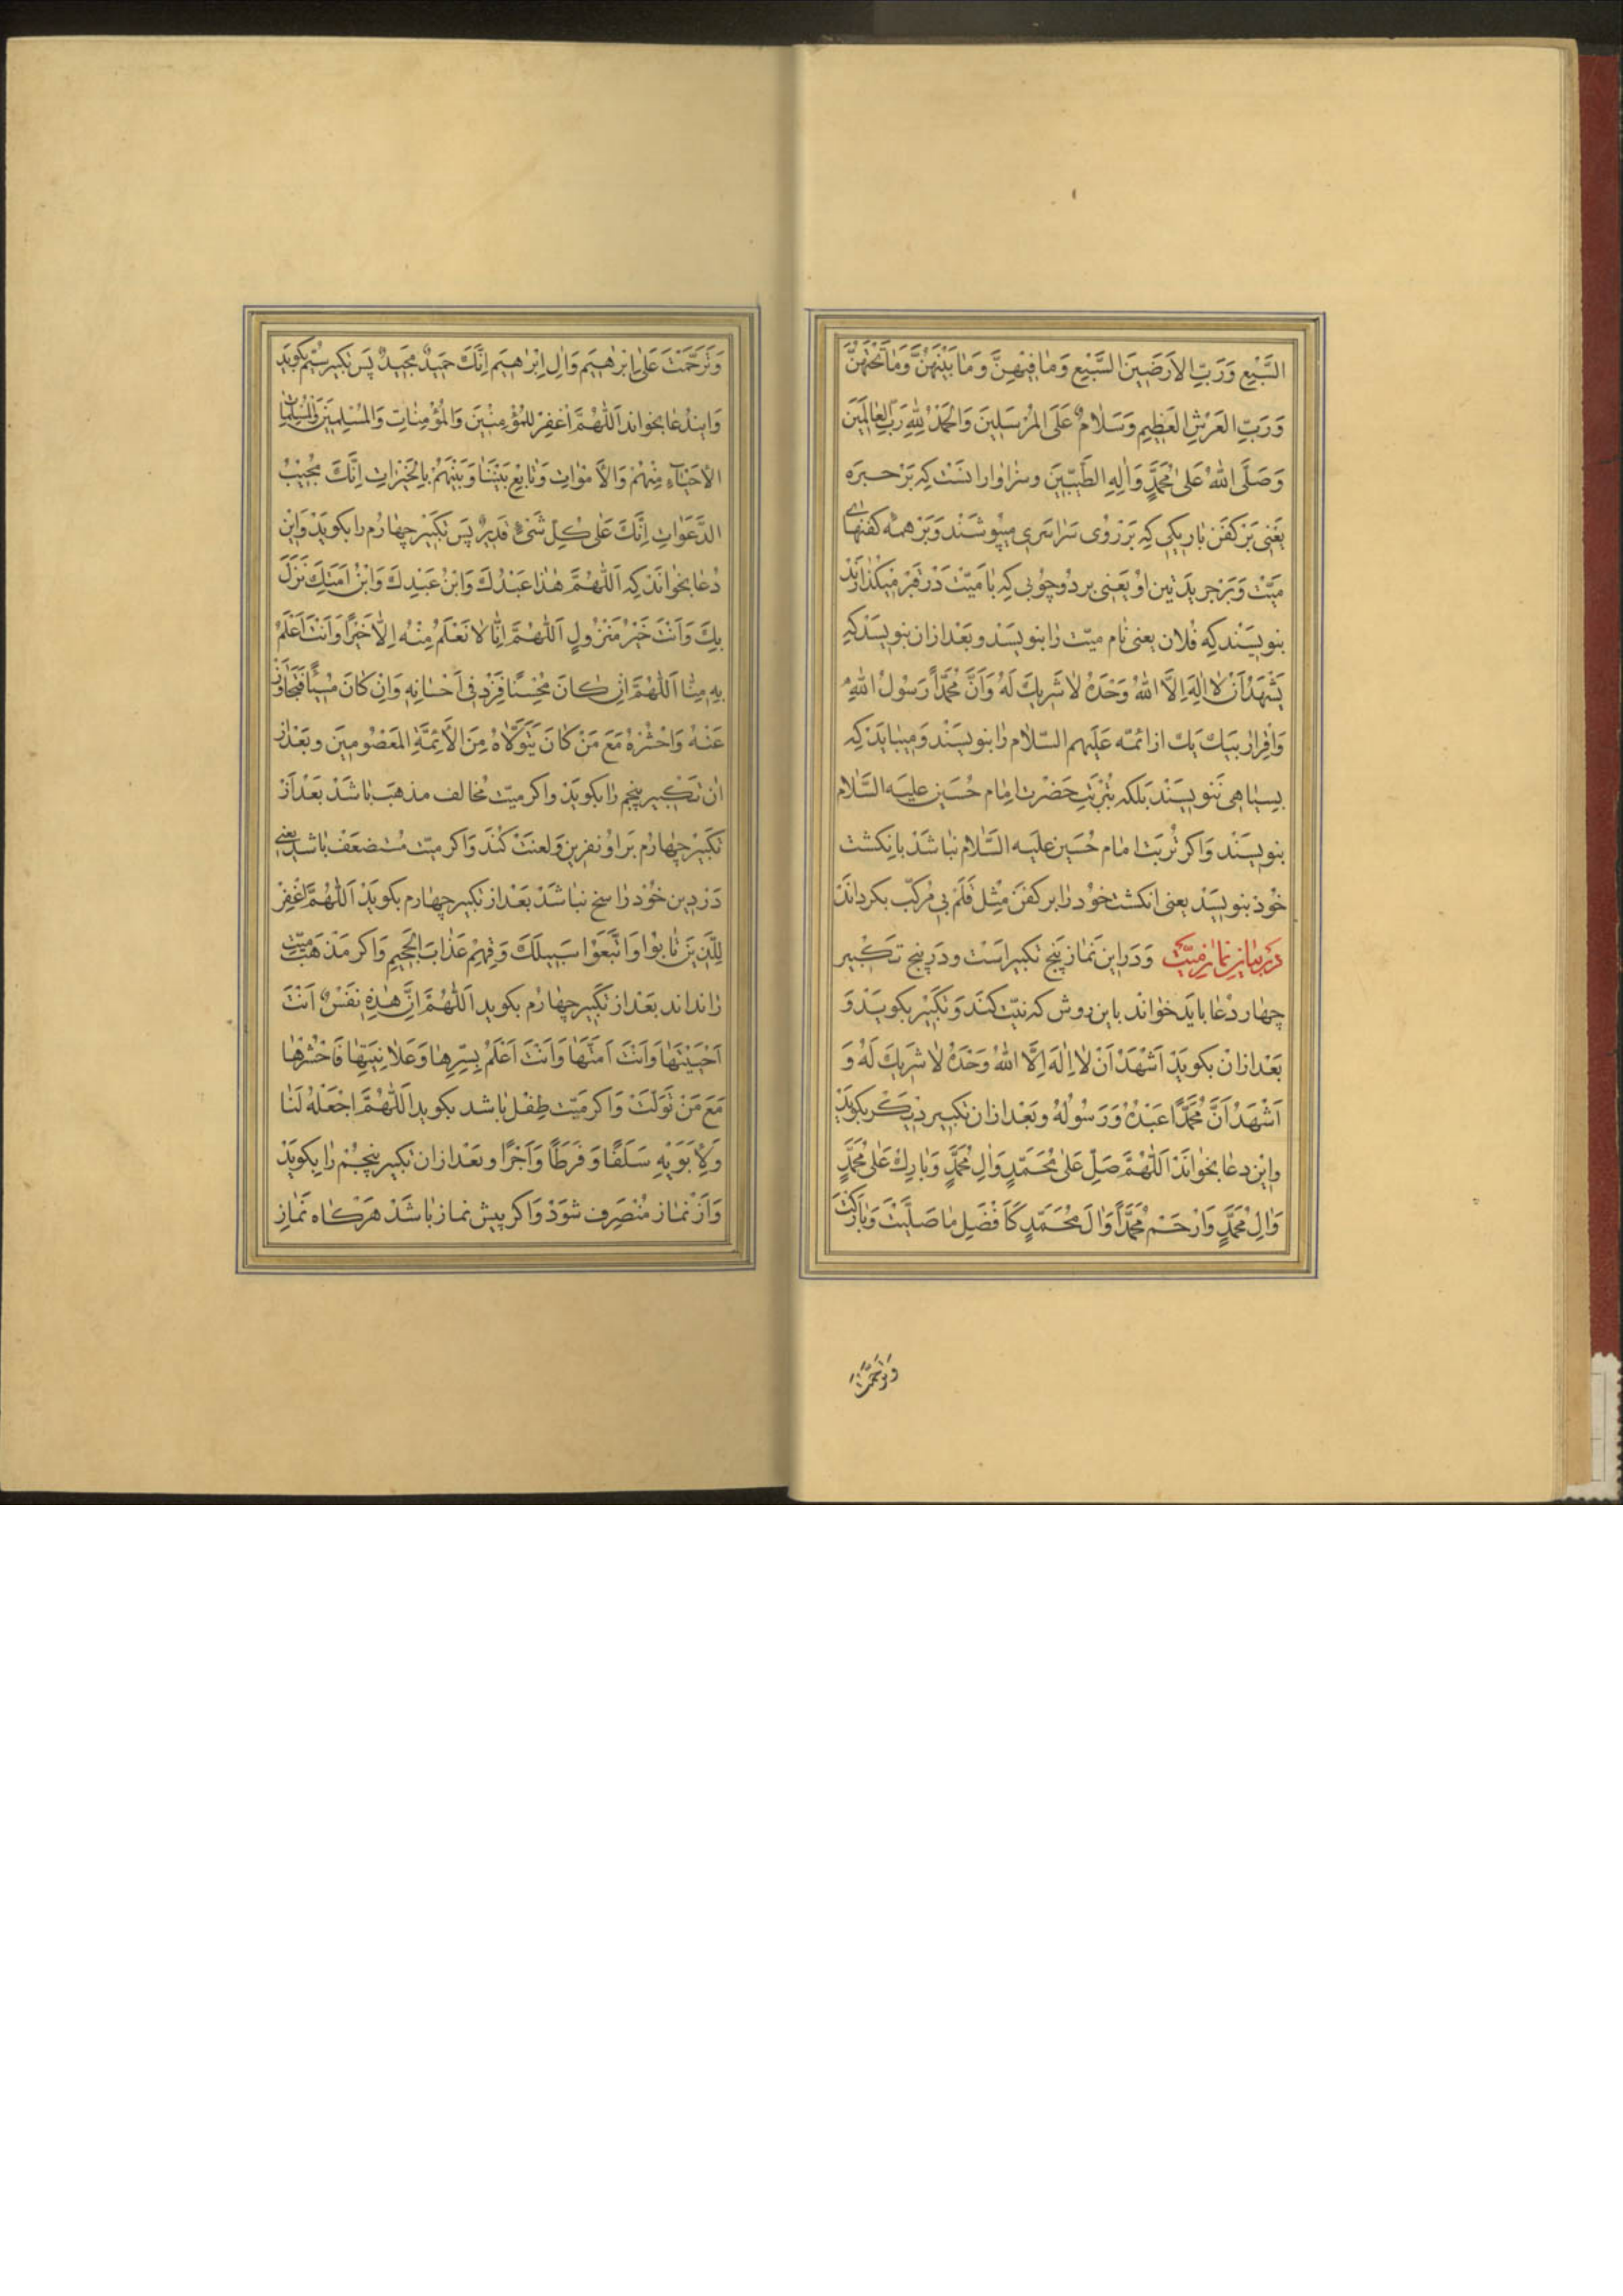 السَّبْعِ وَرَبِّ الاَرَضَينَ السَّبْعِ وَمٰا فِيْهِنَّ وَمٰا بَيْنَهُنَّ وَمٰا تَحْتَهُنَّ
وَرَبِّ العَرْشِ العَظِيمِ وَسَلٰامٌ عَلَى المُرْسَلِينَ وَالحَمْدُ لِلّٰهِ رَبِّ العٰالَمِينَ
وَصَلَّى اللهُ عَلىٰ مُحَمَّدٍ وَاٰلِهِ الطَّيِّبِينَ وسزاوار انست كه بَرْ حبره
يَعْنى بَرْ كفَن باريكى كه بَرْ رُوى سَراسَرى ميپوشَنْد وَبَرْ همه كفنهاى
ميّتْ وَبَرْ جريدَتين اوْ يَعْنى بر دُو چوُبى كه بٰا ميّتْ دَرْ قبرْ ميكذارَند
بنويسَنْد كه فُلان يعنى نٰام ميّت رٰا بنويسَنْد وبَعْد ازان بنويسَنْد كه
يَشْهَدُ اَنْ لٰا اِلٰهَ اِلَّا اللهُ وَحْدَهُ لٰا شَرِيكَ لَهُ وَاَنَّ مُحَمَّداً رَسُولُ اللهِ
وَاقرار بيَك يَك از ائمّه عَلَيهم السّلام رٰا بنويسَنْد وَميبٰايَدْ كه
بسيٰاهى نَنويسَنْد بَلكه بتُرْبَتِ حَضْرت امٰام حُسَين عليه السَّلام
بنويسَنْد وَاكر تُرْبَت امٰام حُسَين عليه السَّلام نبٰاشَدْ بانكشت
خُود بنويسَنْد يعنى انكشت خُود رٰا بر كفَن مِثل قَلَم بى مُركّب بكردانَدْ
دَرْ بيٰانِ نمٰازِ ميّتْ وَدَر اين نَماز پَنج تكبير اَسْت ودَر پنج تَكْبير
چهٰار دُعٰا بايَد خوٰاند باين روش كه نيّت كُنَدَ وَتكبْير بكويَدْ وَ
بَعْد ازانْ بكويَدْ اَشْهَدُ اَنْ لٰا اِلٰهَ اِلَّا اللهُ وَحْدَهُ لٰا شَرِيكَ لَهُ وَ
اَشْهَدُ اَنَّ مُحَمَّداً عَبْدُهُ وَرَسُولُهُ وبَعْد ازان تكبير ديكَر بكويَدْ
واين دعٰا بخوٰانَدْ اَللّٰهُمَّ صَلِّ عَلىٰ مُحَمَّدٍ وَاٰلِ مُحَمَّدٍ وَبٰارِكْ عَلىٰ مُحَمَّدٍ
وَاٰلِ مُحَمَّدٍ وَارْحَمْ مُحَمَّداً وَاٰلَ مُحَمَّدٍ كَاَفْضَلِ مٰا صَلَّيْتَ وَبٰارَكْتَ
وَتَرَحَّمْتَ
وَتَرَحَّمْتَ عَلىٰ اِبْرٰهِيمَ وَاٰلِ اِبْرٰهِيمَ اِنَّكَ حَمِيدٌ مَجِيدٌ پَس تكبير سيّم بكويَد
وَاينْدُعٰا بخواند اَللّٰهُمَّ اغْفِرْ لِلمُؤْمِنينَ وَالمُؤْمِنٰاتِ وَالمُسْلِمينَ وَالمُسْلِمٰاتِ
الاَحْيٰاءِ مِنْهُمْ وَالاَمْوٰاتِ وَتٰابِعْ بَيْنَنٰا وَبَيْنَهُمْ بِالخَيْرٰاتِ اِنَّكَ مُجيبُ
الدَّعَوٰاتِ اِنَّكَ عَلىٰ كُلِّ شَىْءٍ قَدِيرٌ پَس تكبير چهٰارُم رٰا بكويَدْ وَاين
دُعٰا بخوٰانَدْ كه اَللّٰهُمَّ هٰذٰا عَبْدُكَ وَابْنُ عَبْدِكَ وَابْنُ اَمَتِكَ نَزَلَ
بِكَ وَاَنْتَ خَيْرُ مَنْزُولٍ اَللّٰهُمَّ اِنّٰا لٰا نَعْلَمُ مِنْهُ اِلّٰا خَيْراً وَاَنْتَ اَعْلَمُ
بِهِ مِنّٰا اَللّٰهُمَّ اِنْ كٰانَ مُحْسِناً فَزِدْ فى اِحْسٰانِهِ وَاِنْ كٰانَ مُسيئاً فَتَجٰاوَزْ
عَنْهُ وَاحْشُرْهُ مَعَ مَنْ كٰانَ يَتَوَلّٰاهُ مِنَ الاَئِمَّةِ المَعْصُومينَ وبَعْد از
ان تَكْبير پنجم رٰا بكويَدْ واكر ميّت مُخٰالف مذهَب بٰاشَدْ بَعْد اَزْ
تكبير چهٰارُم بَر اوُ نفرين وَلعنَتْ كُنَدْ وَاكر ميّت مُسْتضعَفْ باشد يعنى
دَرْ دين خُود رٰاسخ نبٰاشَدْ بَعْد از تكبير چهٰارم بكويَدْ اَللّٰهُمَّ اغْفِرْ
لِلَّذينَ تٰابُوا وَاتَّبَعُوا سَبيلَكَ وَقِهِمْ عَذٰابَ الجَحيمِ وَاكر مَذْهَب ميّت
رٰا نداند بَعْد از تكبير چهٰارُم بكويد اَللّٰهُمَّ اِنَّ هٰذِهِ نَفْسٌ اَنْتَ
اَحْيَيْتَهٰا وَاَنْتَ اَمَتَّهٰا وَاَنْتَ اَعْلَمُ بِسِرِّهٰا وَعَلٰانِيَتِهٰا فَاحْشُرْهٰا
مَعَ مَنْ تَوَلَّتْ وَاكر مَيّت طِفْل بٰاشد بكويد اَللّٰهُمَّ اجْعَلْهُ لَنٰا
وَلِاَبَوَيْهِ سَلَفاً وَفَرَطاً وَاَجْراً وبَعْد ازان تكبير پنجُمْ رٰا بكويَدْ
وَاَزْ نمٰاز مُنْصَرِف شوَدْ وَاكر پيش نماز بٰاشَدْ هَرْكٰاه نَمٰازِ